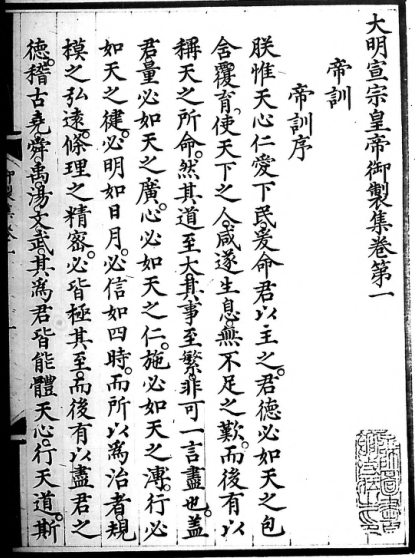 大明宣宗皇帝御製集卷第一
帝訓
帝訓序
朕惟天心仁愛下民爰命君以主之君德必如天之包
含覆育使天下之人咸遂生息無不足之歎而後有以
稱天之所命然其道至大其事至繁非可一言盡也蓋
君量必如天之廣心必如天之仁施必如天之溥行必
如天之健必明如日月必信如四時而所以為治者規
模之弘遠條理之精密必皆極其至而後有以盡君之
德稽古堯舜禹湯文武其為君皆能體天心行天道斯